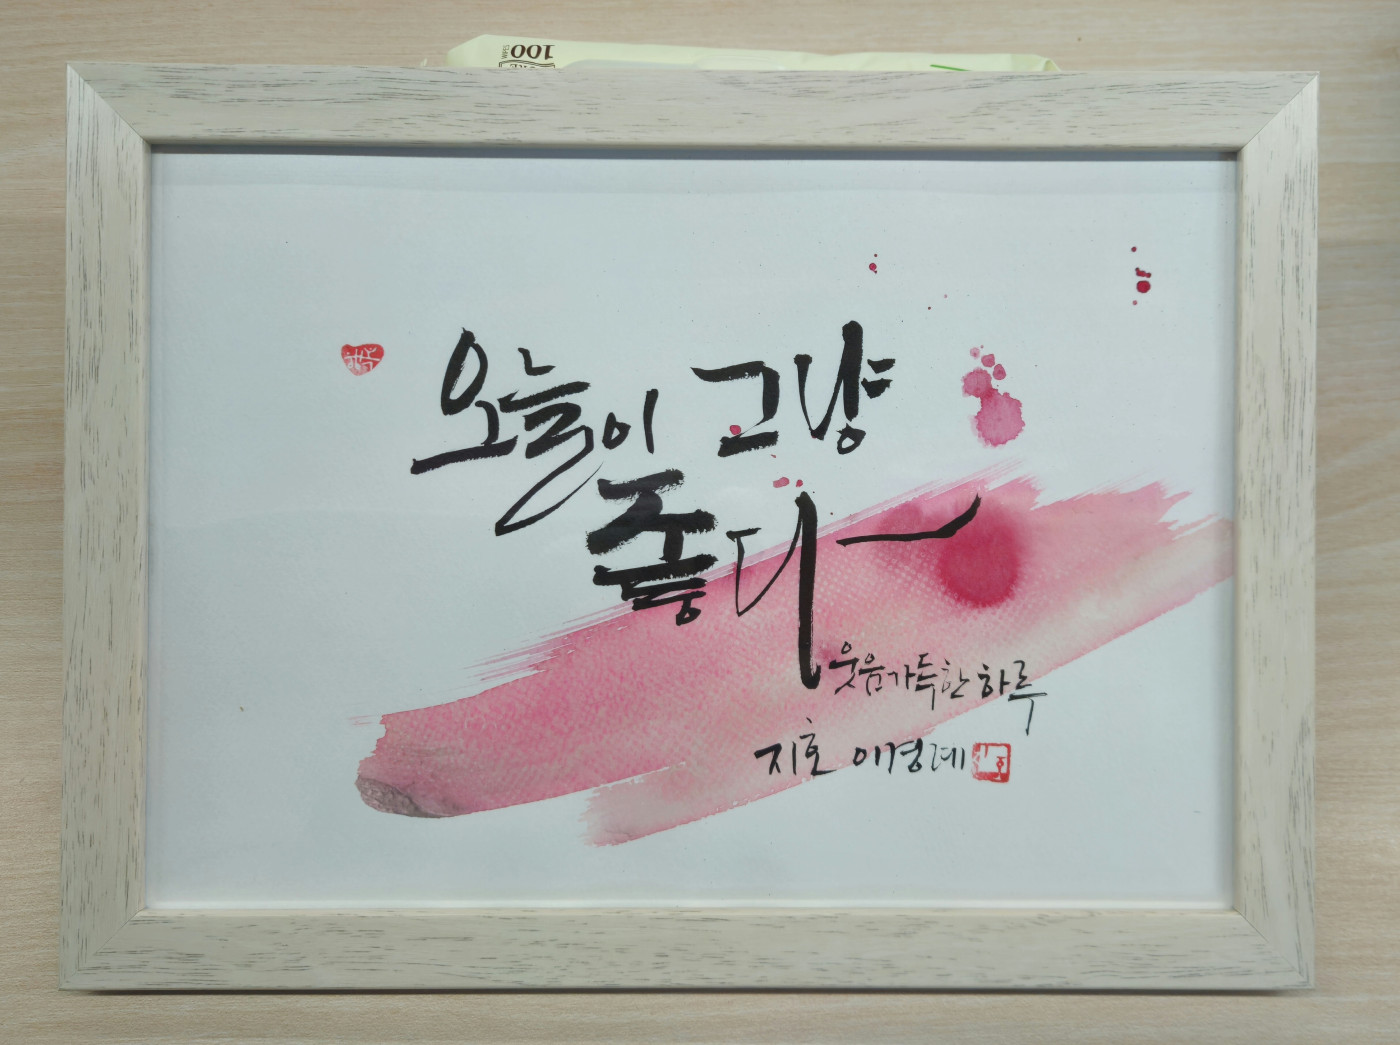 100
오늘이 그냥
좋다
웃음가득한 하루
지호 이경례